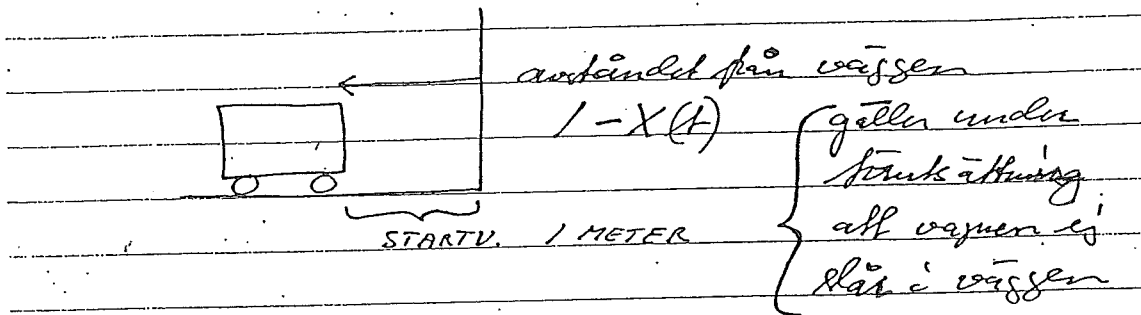 avståndet från väggen
1 - X(t)
gäller under
förutsättning
att vagnen ej
slår i väggen
STARTV. 1 METER